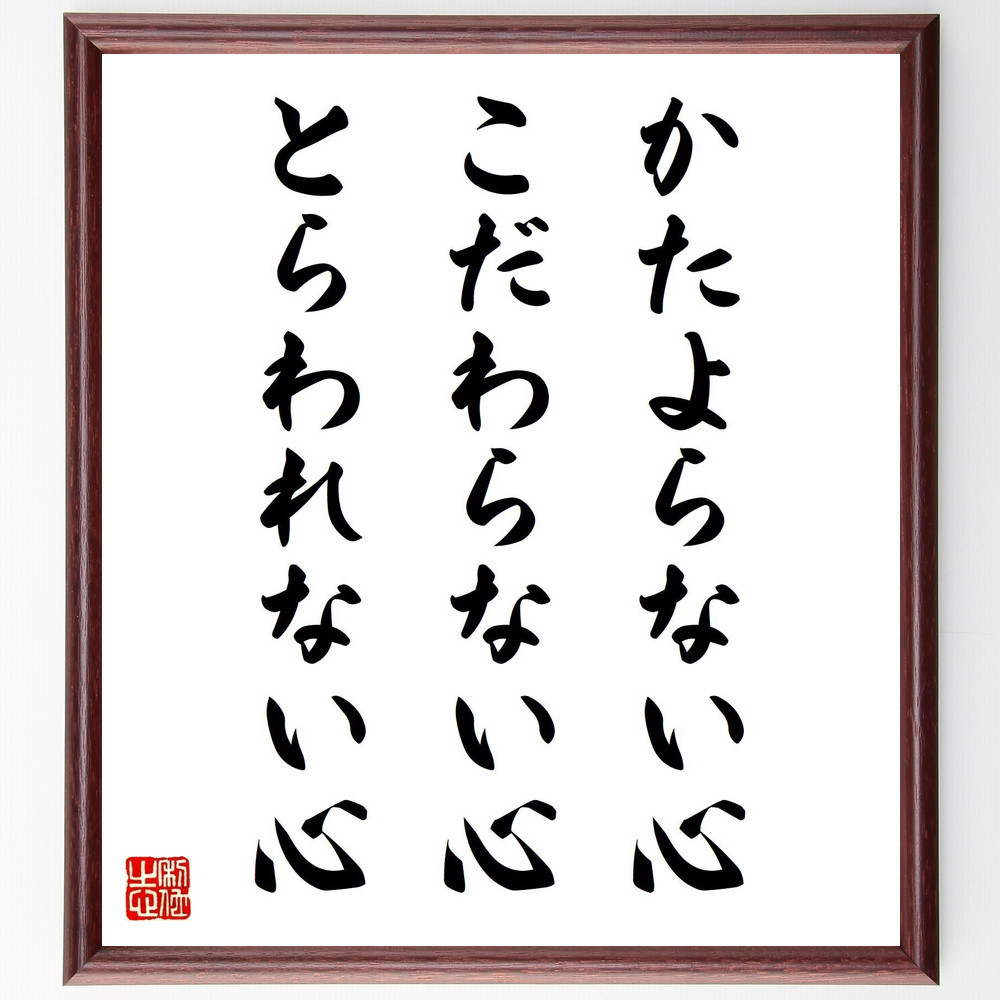 かたよらない心
こだわらない心
とらわれない心